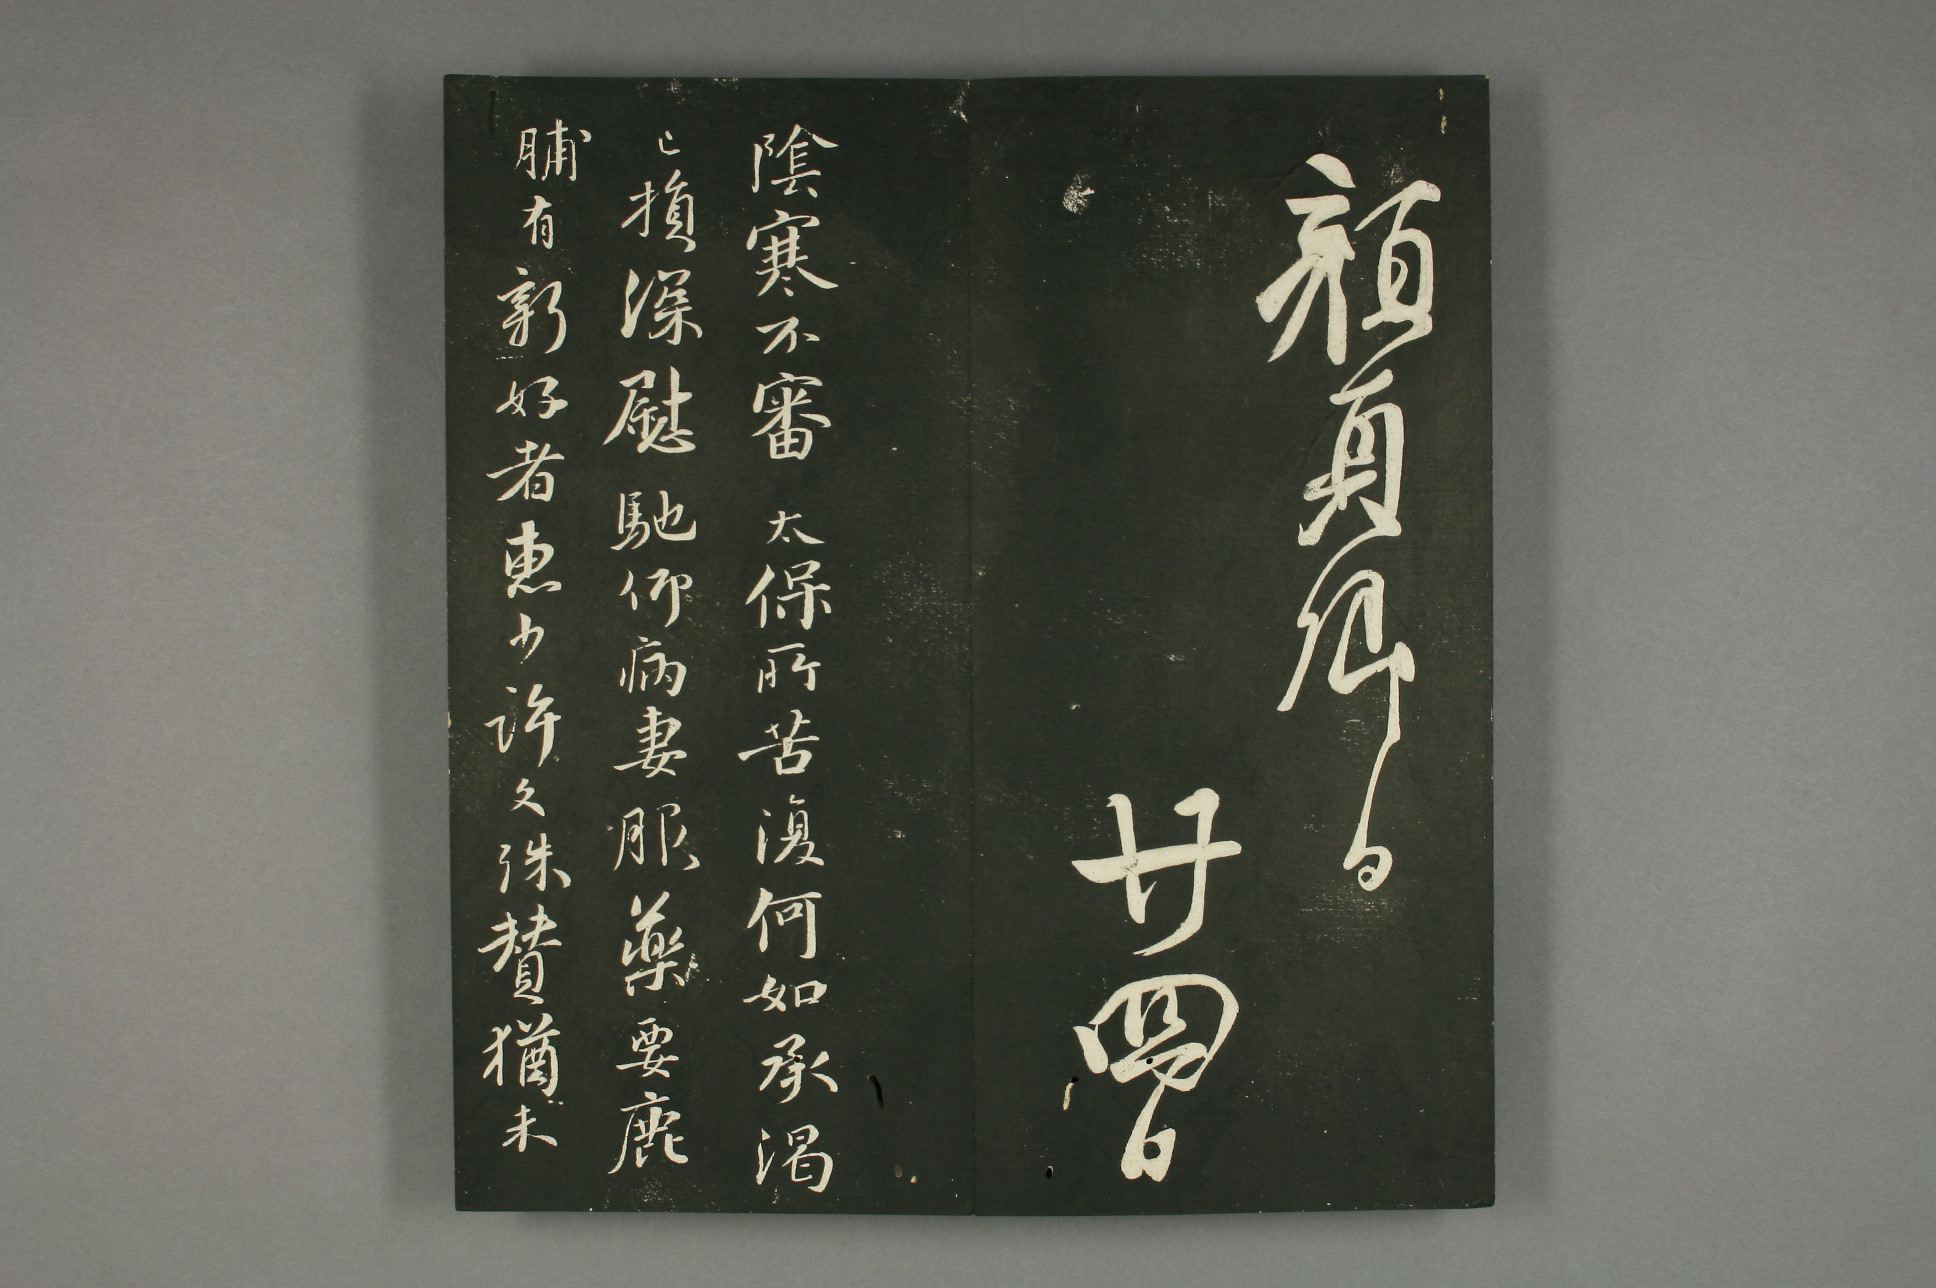 顏真卿白
廿四日
陰寒不審太保所苦復何如承渴
已損深慰馳仰病妻服藥要鹿
脯有新好者惠少許幺殊賛猶未